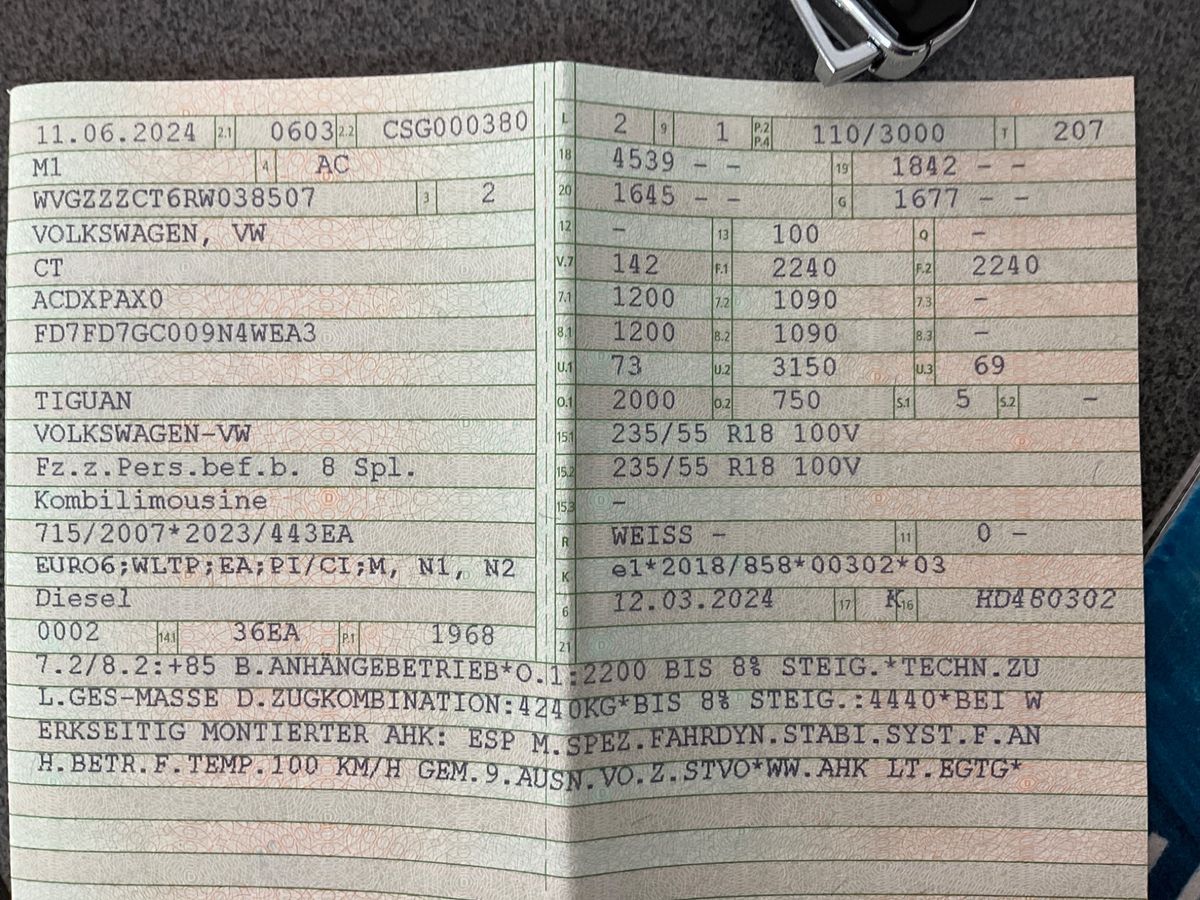 11.06.2024 2.1 0603 2.2 CSG000380
M1 4 AC
WVGZZZCT6RW038507 3 2
VOLKSWAGEN, VW
CT
ACDXPAX0
FD7FD7GC009N4WEA3
TIGUAN
VOLKSWAGEN-VW
Fz.z.Pers.bef.b. 8 Spl.
Kombilimousine
715/2007*2023/443EA
EURO6;WLTP;EA;PI/CI;M, N1, N2
Diesel
0002 14.1 36EA P.1 1968
L 2 9 1 P.2 P.4 110/3000 T 207
18 4539 - - 19 1842 - -
20 1645 - - G 1677 - -
12 - 13 100 Q -
V.7 142 F.1 2240 F.2 2240
7.1 1200 7.2 1090 7.3 -
8.1 1200 8.2 1090 8.3 -
U.1 73 U.2 3150 U.3 69
O.1 2000 O.2 750 S.1 5 S.2 -
15.1 235/55 R18 100V
15.2 235/55 R18 100V
15.3 -
R WEISS - 11 0 -
K e1*2018/858*00302*03
6 12.03.2024 17 K 16 HD480302
21
7.2/8.2:+85 B.ANHÄNGEBETRIEB*O.1:2200 BIS 8% STEIG.*TECHN.ZU
L.GES-MASSE D.ZUGKOMBINATION:4240KG*BIS 8% STEIG.:4440*BEI W
ERKSEITIG MONTIERTER AHK: ESP M.SPEZ.FAHRDYN.STABI.SYST.F.AN
H.BETR.F.TEMP.100 KM/H GEM.9.AUSN.VO.Z.STVO*WW.AHK LT.EGTG*